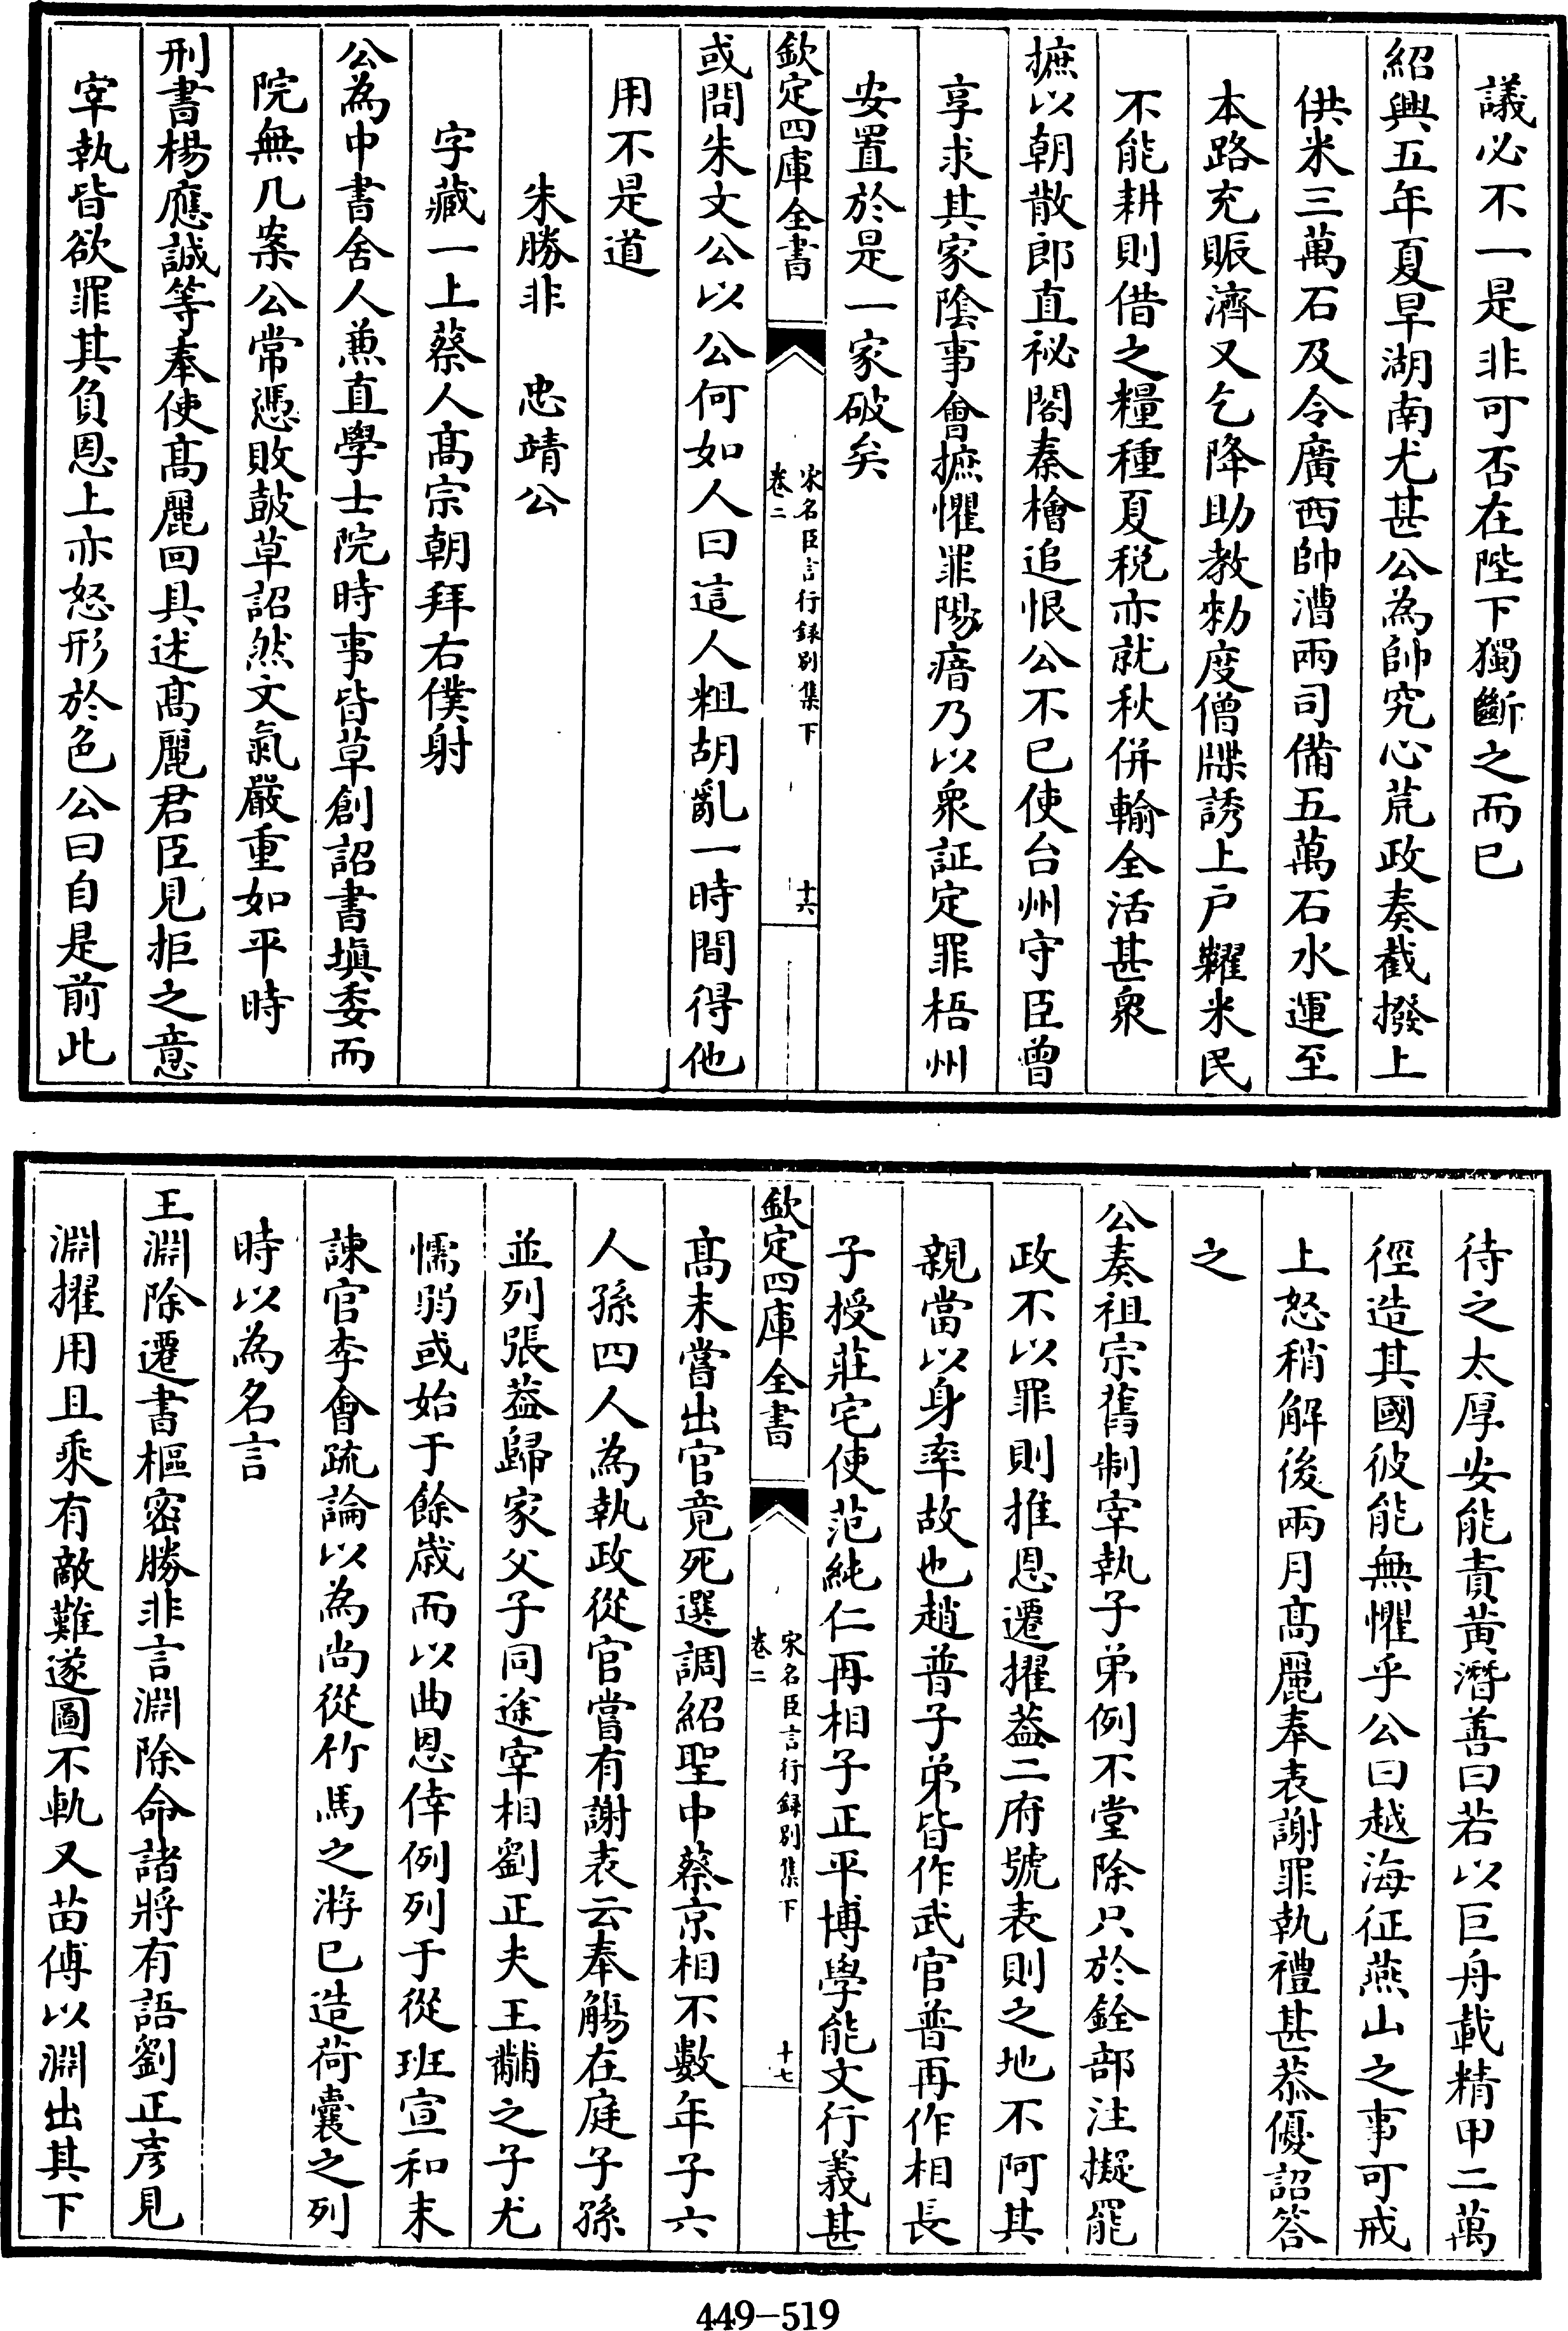 議必不一是非可否在陛下獨斷之而已
紹興五年夏旱湖南尤甚公為帥究心荒政奏截撥上
供米三萬石及令廣西帥漕兩司備五萬石水運至
本路充賑濟又乞降助教勑度僧牒誘上户糶米民
不能耕則借之糧種夏税亦就秋併輸全活甚衆
摭以朝散郎直祕閣秦檜追恨公不已使台州守臣曾
享求其家陰事會摭懼罪陽瘖乃以衆証定罪梧州
安置於是一家破矣
欽定四庫全書
宋名臣言行録别集下
卷二
十六
或問朱文公以公何如人曰這人粗胡亂一時間得他
用不是道
朱勝非　忠靖公
字藏一上蔡人髙宗朝拜右僕射
公為中書舍人兼直學士院時事皆草創詔書填委而
院無几案公常憑敗鼓草詔然文氣嚴重如平時
刑書楊應誠等奉使髙麗回具述髙麗君臣見拒之意
宰執皆欲罪其負恩上亦怒形於色公曰自是前此
待之太厚安能責黄潛善曰若以巨舟載精甲二萬
徑造其國彼能無懼乎公曰越海征燕山之事可戒
上怒稍解後兩月髙麗奉表謝罪執禮甚恭優詔答
之
公奏祖宗舊制宰執子弟例不堂除只於銓部注擬罷
政不以罪則推恩遷擢葢二府號表則之地不阿其
親當以身率故也趙普子弟皆作武官普再作相長
子授莊宅使范純仁再相子正平博學能文行義甚
欽定四庫全書
宋名臣言行録别集下
卷二
十七
髙未嘗出官竟死選調紹聖中蔡京相不數年子六
人孫四人為執政從官嘗有謝表云奉觴在庭子孫
並列張葢歸家父子同途宰相劉正夫王黼之子尤
懦弱或始于餘歳而以曲恩倖例列于從班宣和末
諫官李會疏論以為尚從竹馬之游已造荷囊之列
時以為名言
王淵除遷書樞密勝非言淵除命諸將有語劉正彦見
淵擢用且乘有敵難遂圖不軌又苗傅以淵出其下
449-519